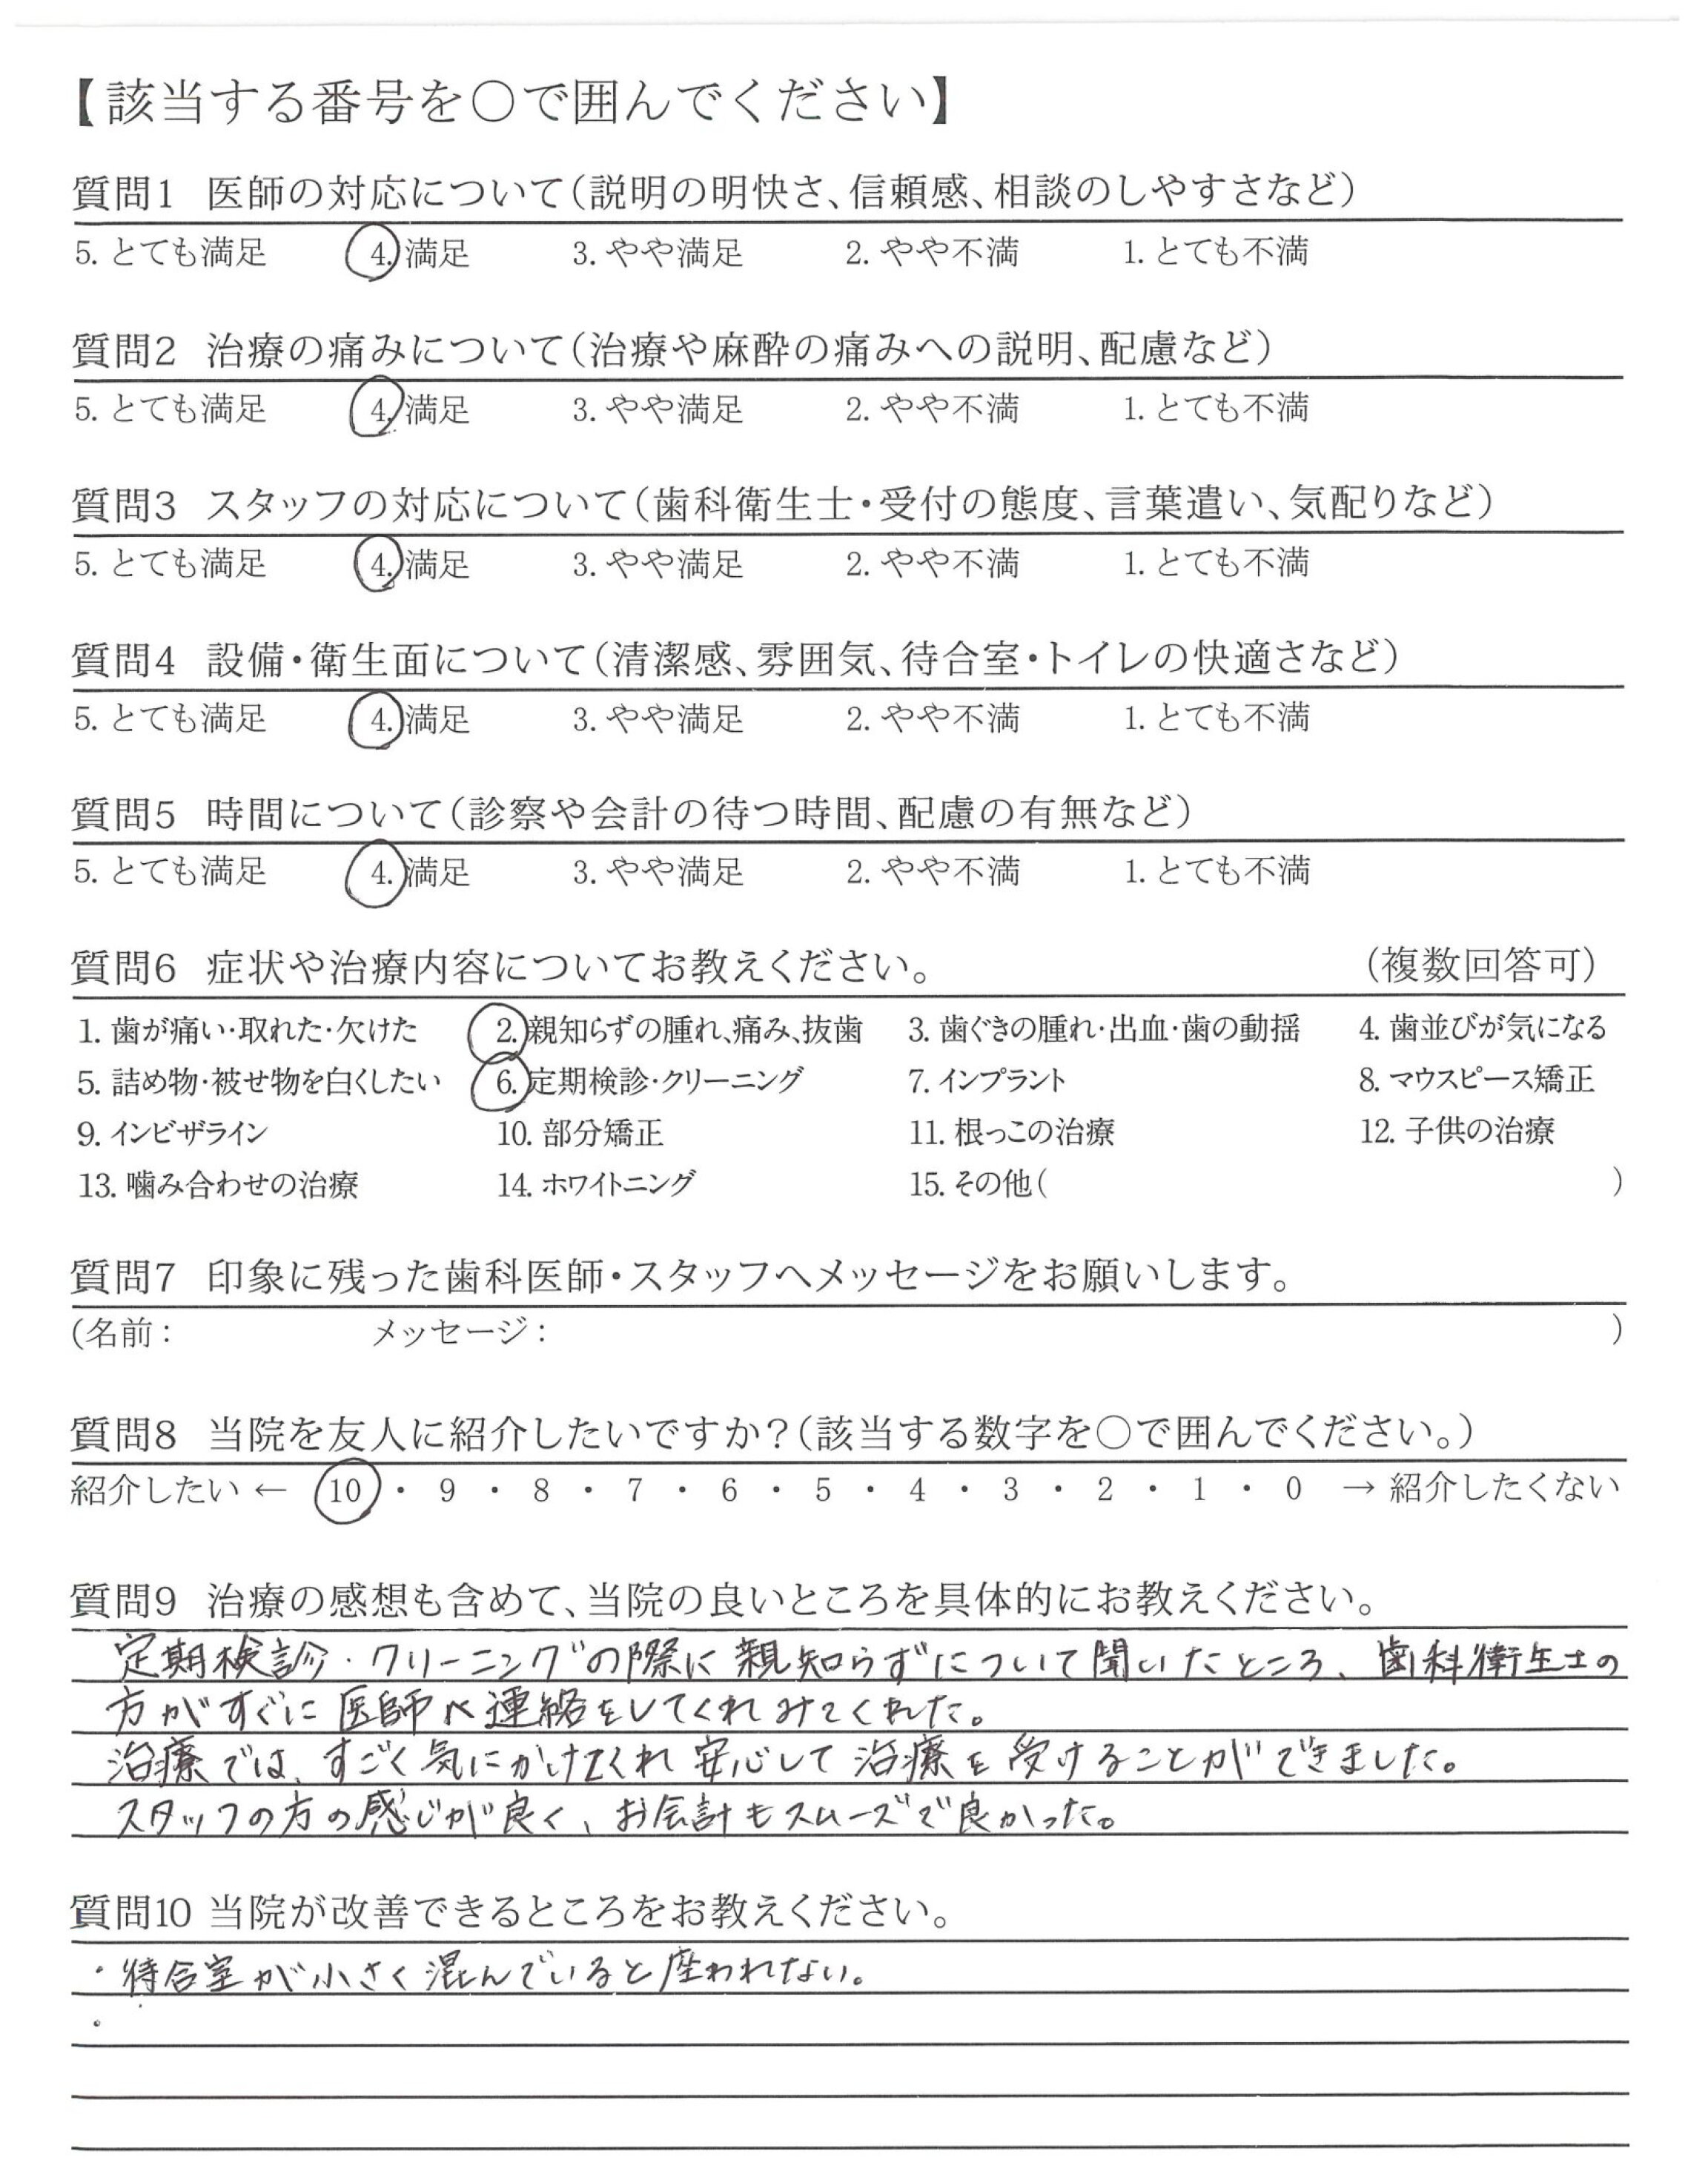 【該当する番号を〇で囲んでください】
質問1 医師の対応について(説明の明快さ、信頼感、相談のしやすさなど)
5. とても満足 4. 満足 3. やや満足 2. やや不満 1. とても不満
質問2 治療の痛みについて(治療や麻酔の痛みへの説明、配慮など)
5. とても満足 4. 満足 3. やや満足 2. やや不満 1. とても不満
質問3 スタッフの対応について(歯科衛生士・受付の態度、言葉遣い、気配りなど)
5. とても満足 4. 満足 3. やや満足 2. やや不満 1. とても不満
質問4 設備・衛生面について(清潔感、雰囲気、待合室・トイレの快適さなど)
5. とても満足 4. 満足 3. やや満足 2. やや不満 1. とても不満
質問5 時間について(診察や会計の待つ時間、配慮の有無など)
5. とても満足 4. 満足 3. やや満足 2. やや不満 1. とても不満
質問6 症状や治療内容についてお教えください。 (複数回答可)
1. 歯が痛い・取れた・欠けた 2. 親知らずの腫れ、痛み、抜歯 3. 歯ぐきの腫れ・出血・歯の動揺 4. 歯並びが気になる
5. 詰め物・被せ物を白くしたい 6. 定期検診・クリーニング 7. インプラント 8. マウスピース矯正
9. インビザライン 10. 部分矯正 11. 根っこの治療 12. 子供の治療
13. 噛み合わせの治療 14. ホワイトニング 15. その他( )
質問7 印象に残った歯科医師・スタッフへメッセージをお願いします。
(名前: メッセージ: )
質問8 当院を友人に紹介したいですか?(該当する数字を〇で囲んでください。)
紹介したい ← 10 ・ 9 ・ 8 ・ 7 ・ 6 ・ 5 ・ 4 ・ 3 ・ 2 ・ 1 ・ 0 → 紹介したくない
質問9 治療の感想も含めて、当院の良いところを具体的にお教えください。
定期検診・クリーニングの際に親知らずについて聞いたところ、歯科衛生士の
方がすぐに医師へ連絡をしてくれみてくれた。
治療では、すごく気にかけてくれ安心して治療を受けることができました。
スタッフの方の感じが良く、お会計もスムーズで良かった。
質問10 当院が改善できるところをお教えください。
・待合室が小さく混んでいると座われない。
・